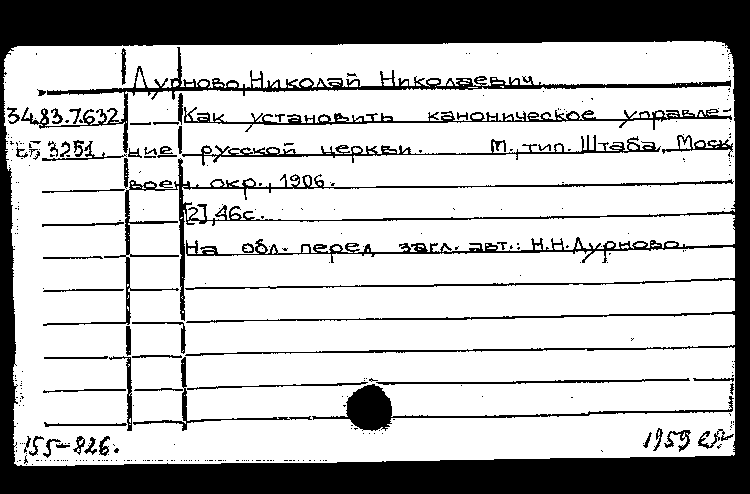 Дурново, Николай Николаевич.
34.83.7.632. Как установить каноническое управле-
ББ 3251. ние русской церкви. М., тип. Штаба, Моск
воен. окр., 1906.
[2], 46с.
На обл. перед загл. авт.: Н.Н. Дурново.
155-826.
1959